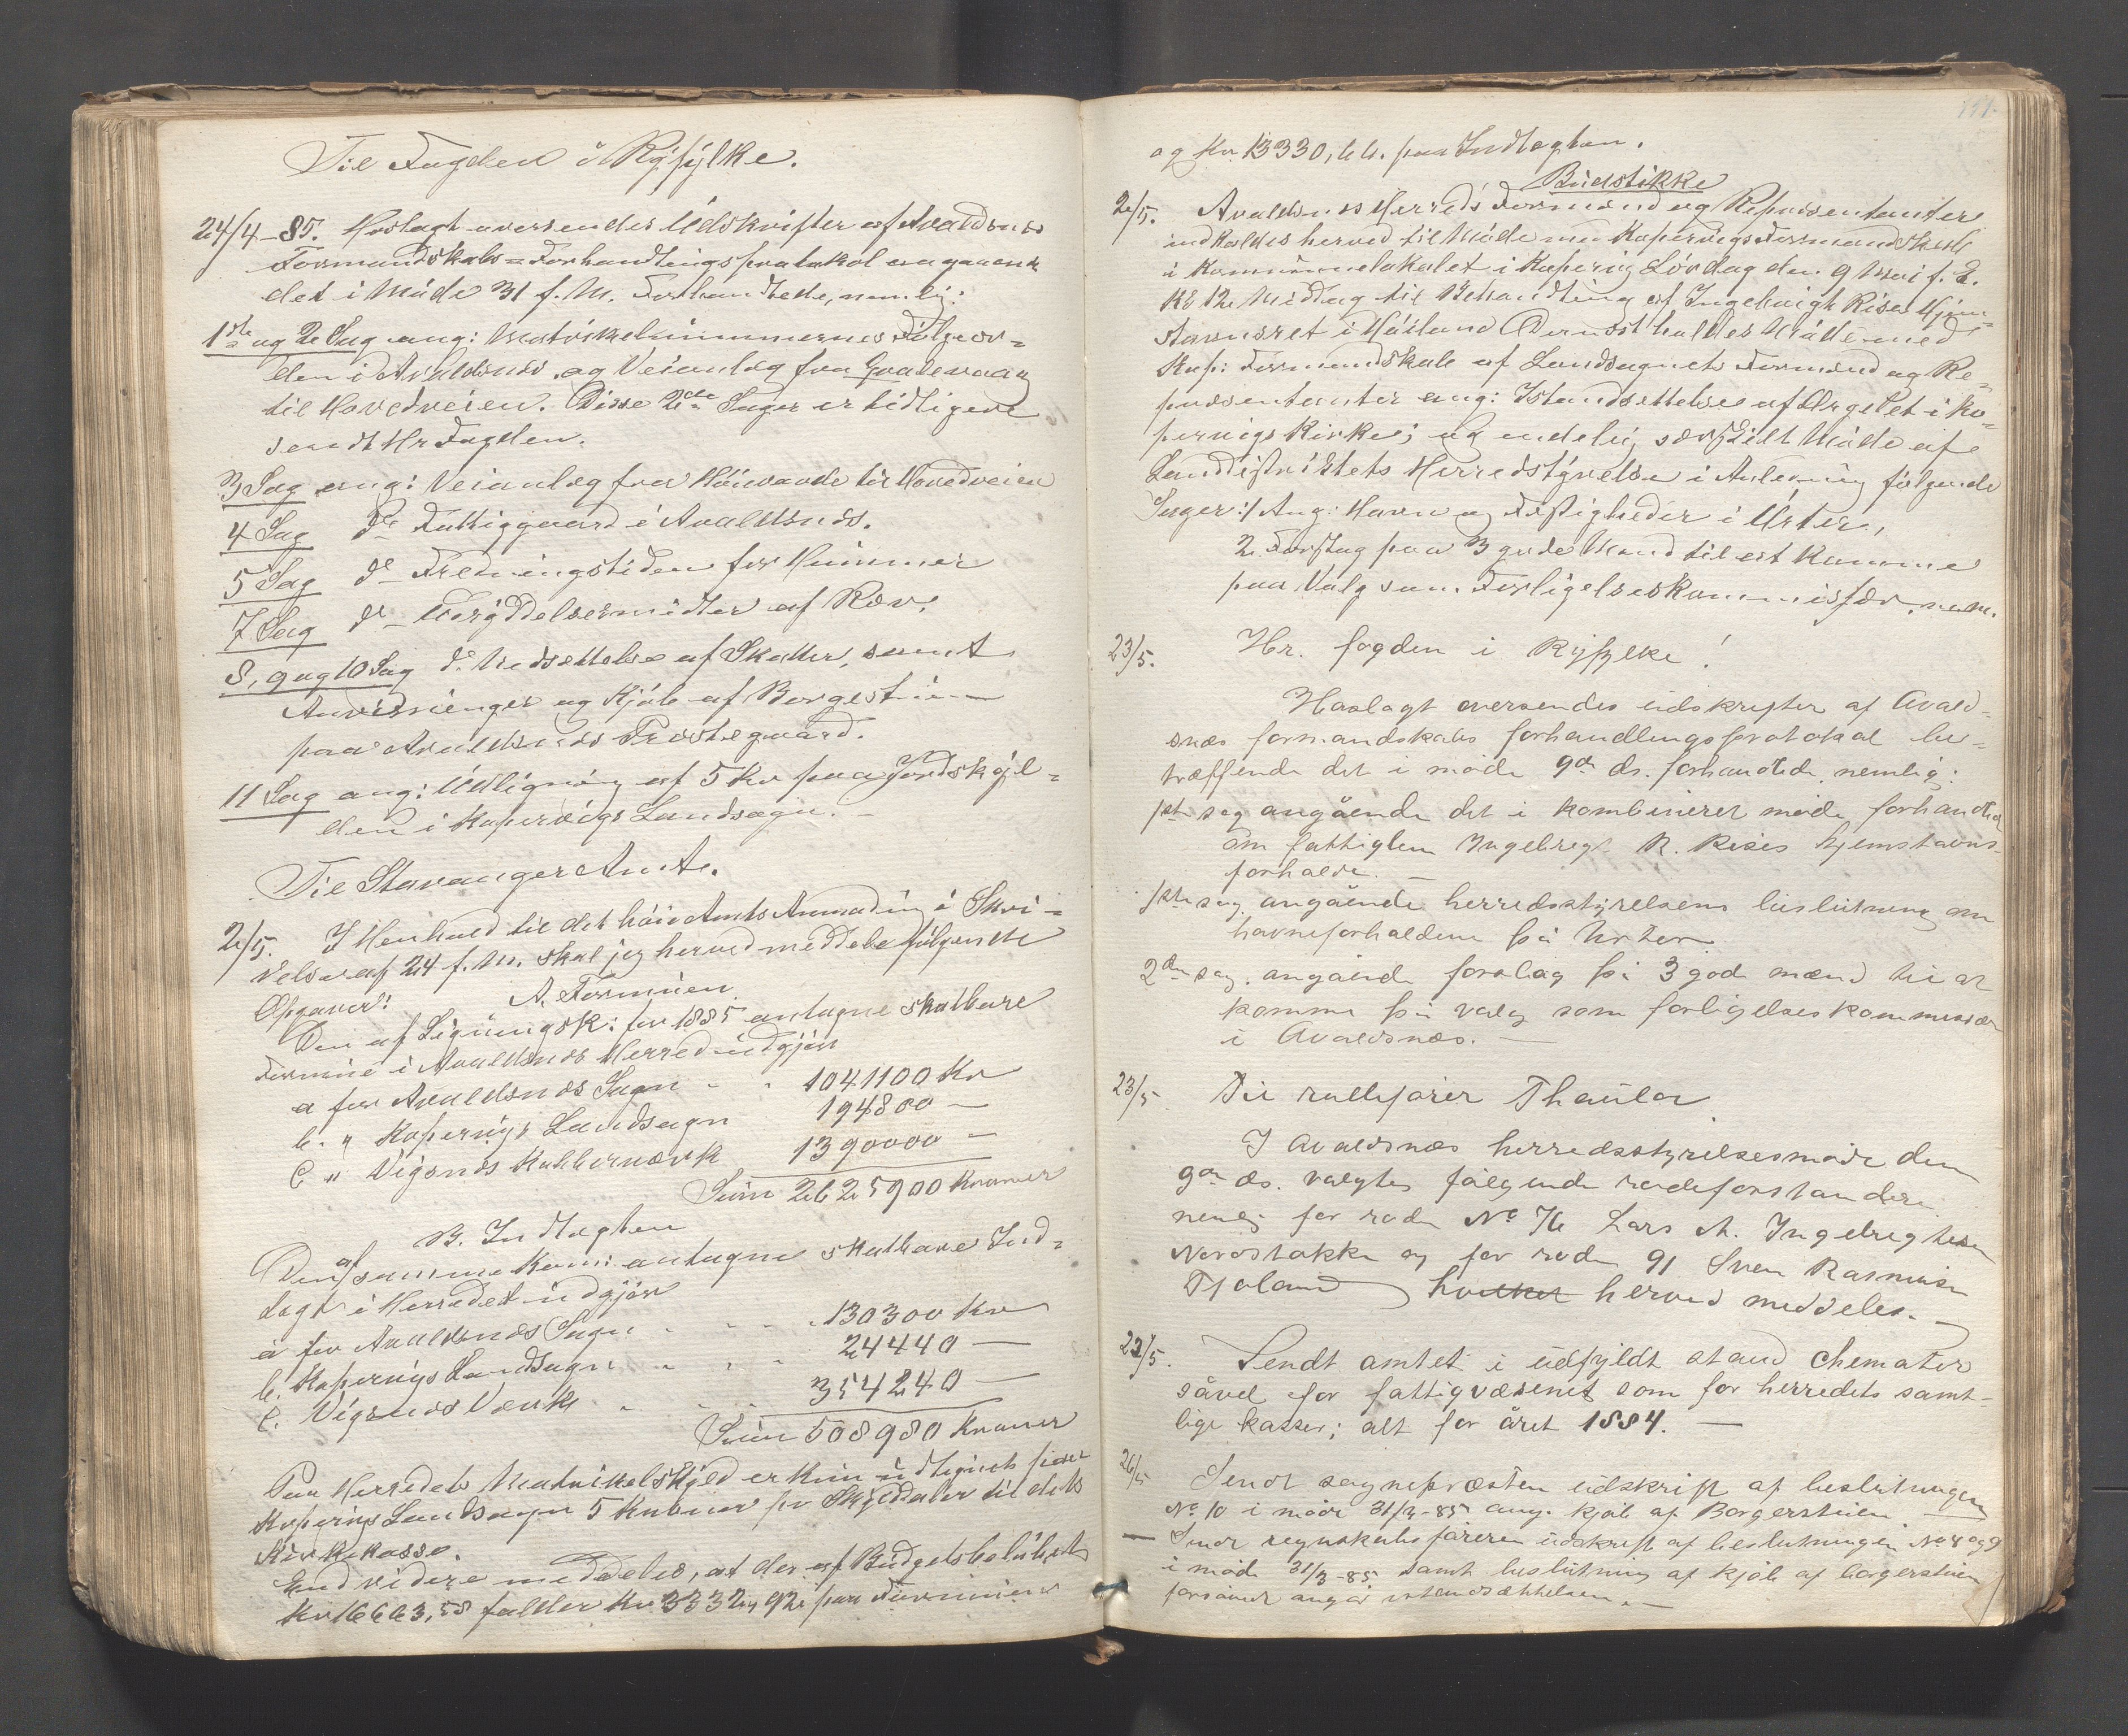 Til Fogden i Ryfylke.
24/4-85. Hoslagt oversendes Udskrifter af Avaldsnes
Formandskabs-Forhandlingsprotokol angaaende
det i Møde 31 f. M. Forhandlede, nemlig:
1ste og 2 Sag ang: Matrikelnummernes Følgeor-
den i Avaldsnes og Veianlæg fra
til Hovedveien. Disse 2de Sager er tidligere
sendt Hr Fogden.
3 Sag ang: Veianlæg fra Høievarde til Hovedveien
4 Sag do Fattiggaard i Avaldsnes.
5 Sag do Fredningstiden for Hummer
7 Sag do Udryddelsesmidler af Ræv.
8, 9 og 10 Sag do Nedsættelse af Skatter, samt
Anvisninger og Kjøb af Borgestuen
paa Avaldsnes Prestegaard.
11 Sag ang: Udligning af 5 Kr paa Jordskyl-
den i Kopervigs Landsogn. -
Til Stavanger Amt.
2/5. I Henhold til det høie Amts Anmodning i Skri-
velse af 24 f. M. skal jeg herved meddele følgende
Opgaver: A. Formuen
Den af Ligningsk: for 1885 antagne skatbare
Formue i Avaldsnes Herred udgjør
a for Avaldsnes Sogn - - 1041100 Kr
b. " Kopervigs Landsogn 194800 -
c " Vigsnes Kobberværk 1390000 -
Sum 2625900 Kroner
B. Indtægten
Den af samme Kom: antagne skatbare Ind-
tægt i Herredet udgjør
a for Avaldsnes Sogn - - - 130300 Kr
b. Kopervigs Landsogn " " " 24440 -
c. Vigsnes Værk " " " 354240 -
Sum 508980 Kroner
Paa Herredets Matrikelskyld er kun udlignet paa
Kopervigs Landsogn 5 Kroner pr Skylddaler til dets
Kirkekasse.
Endvidere meddeles, at der af Budgetsbeløbet
Kr 16663,58 falder Kr 3332,92 paa Formuen
og Kr 13330,66. paa Indtægten.
Budstikke
2/5. Avaldsnes Herreds Formænd og Repræsentanter
indkaldes herved til Møde med Kopervigs Formandskab
i Kommunelokalet i Kopervig Lørdag den 9 Mai f. E.
Kl 12 Middag til Behandling af Ingebrigt Rises Hjem-
stavnsret i Dernæst holdes Møde med
Kop: Formandskab af Landsognets Formænd og Re-
præsentanter ang: Istandsettelse af Orgelet i Ko-
pervigs Kirke; og endelig særskilt Møde af
Landdistriktets Herredstyrelse i Anledning følgende
Sager: 1 Ang: Havn og Festigheder i Urter,
2. Forslag paa 3 gode Mænd til at komme
paa Valg som Forligelseskommissær. m.m.
23/5. Hr. fogden i Ryfylke!
Hoslagt oversendes udskrifter af Avald-
snæs formandskabs forhandlingsprotokol be-
træffende det i møde 9de ds. forhandlede, nemlig:
1ste sag angående det i kombineret møde forhandled
om fattiglem Ingebrigt R. Rises hjemstavns
forholde. -
1ste sag. angående herredsstyrelsens beslutning om
havneforholdene på Urter.
2den sag. angående forslag på 3 gode mænd til at
komme på valg som forligelseskommissær
i Avaldsnæs. -
23/5 Til rulleførér Thaulov.
I Avaldsnæs herredsstyrelsesmøde den
9de ds. valgtes følgende rodeforstandere
nemlig for rode No 76 Lars M. Ingebrigtsen
Nordstokke og for rode 91 Sven Rasmusen
Tjoland, hvilket herved meddeles. -
23/5. Sendt amtet i udfyldt stand skemater
såvel for fattigvæsenet som for herredets samt-
lige kasser; alt for året 1884. -
26/5 Sendt sognepræsten udskrift af beslutningen
No 10 i møde 31/3-85 ang. kjøb af Borgerstuen. -
- Sendt regnskabsføreren udskrift af beslutningen No 8 og 9
i møde 31/3-85 samt beslutning af kjøb af borgerstuen
forsåvidt angår istandsættelsen. -